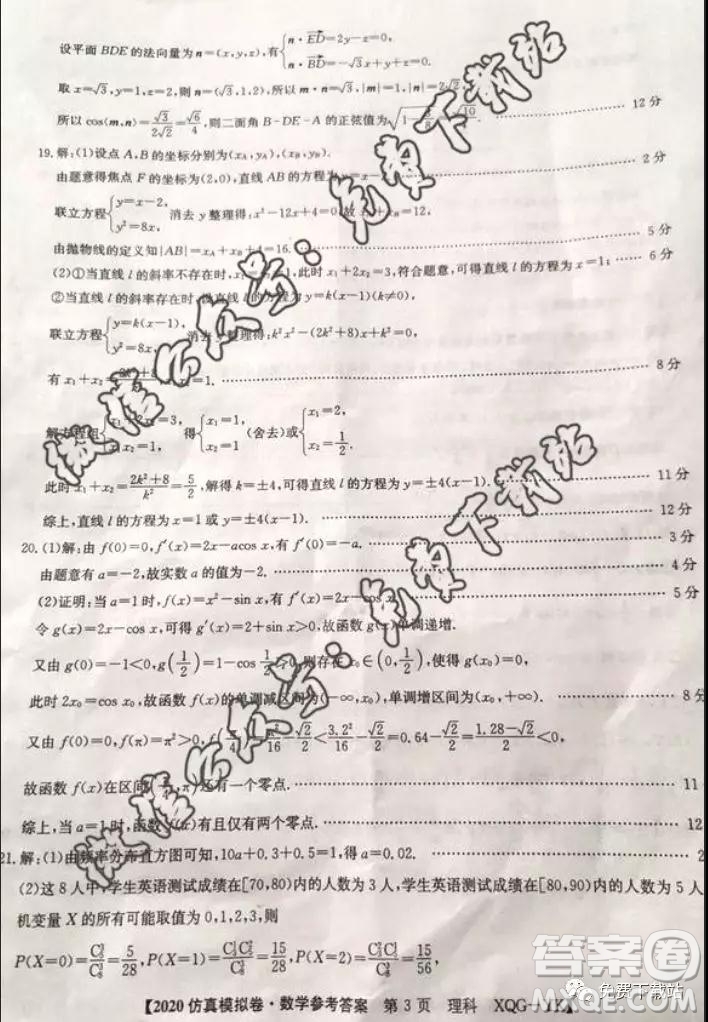 设平面 BDE 的法向量为 n=(x,y,z),有{n·ED=2y-z=0, n·BD=-√3x+y+z=0.
取 x=√3,y=1,z=2,则 n=(√3,1,2),所以 m·n=√3,|m|=1,|n|=2√2,
所以 cos⟨m,n⟩=√3/2√2=√6/4,则二面角 B-DE-A 的正弦值为 12分
19.解:(1)设点 A,B 的坐标分别为(xA,yA),(xB,yB).
由题意得焦点 F 的坐标为(2,0),直线 AB 的方程为 2分
联立方程{y=x-2, y²=8x, 消去 y 整理得:x²-12x+4=0, xB=12,
由抛物线的定义知|AB|=xA+xB+4=16. 5分
(2)①当直线 l 的斜率不存在时, 此时 x1+2x2=3,符合题意,可得直线 l 的方程为 x=1; 6分
②当直线 l 的斜率存在时, 直线 l 的方程为 y=k(x-1)(k≠0),
联立方程{y=k(x-1), y²=8x, 消去 y 整理得:k²x²-(2k²+8)x+k²=0,
有 x1+x2= =1. 8分
解方程组 =3, x1x2=1, 得{x1=1, x2=1 (舍去)或{x1=2, x2=1/2.
此时 x1+x2=(2k²+8)/k²=5/2,解得 k=±4,可得直线 l 的方程为 y=±4(x-1). 11分
综上,直线 l 的方程为 x=1 或 y=±4(x-1). 12分
20.(1)解:由 f(0)=0,f′(x)=2x-acos x,有 f′(0)=-a. 3分
由题意有 a=-2,故实数 a 的值为-2. 4分
(2)证明:当 a=1 时,f(x)=x²-sin x,有 f′(x)=2x-cos x. 5分
令 g(x)=2x-cos x,可得 g′(x)=2+sin x>0,故函数 g(x)单调递增.
又由 g(0)=-1<0,g(1/2)=1-cos 1/2>0,则存在 x0∈(0,1/2),使得 g(x0)=0,
此时 2x0=cos x0,故函数 f(x)的单调减区间为(-∞,x0),单调增区间为(x0,+∞). 8分
又由 f(0)=0,f(π)=π²>0, -√2/2<3.2²/16-√2/2=0.64-√2/2=(1.28-√2)/2<0,
故函数 f(x)在区间 还有一个零点. 11
综上,当 a=1 时,函数 f(x)有且仅有两个零点. 12
21.解:(1)由频率分布直方图可知,10a+0.3+0.5=1,得 a=0.02. 2
(2)这 8 人中,学生英语测试成绩在[70,80)内的人数为 3 人,学生英语测试成绩在[80,90)内的人数为 5 人
机变量 X 的所有可能取值为 0,1,2,3,则
P(X=0)=C /C =5/28,P(X=1)=C C /C =15/28,P(X=2)=C C /C =15/56,
【2020 仿真模拟卷·数学参考答案 第 3 页 理科 XQG
微信公众号:充授下载站
答案圈
免费下载站
MXQE.COM